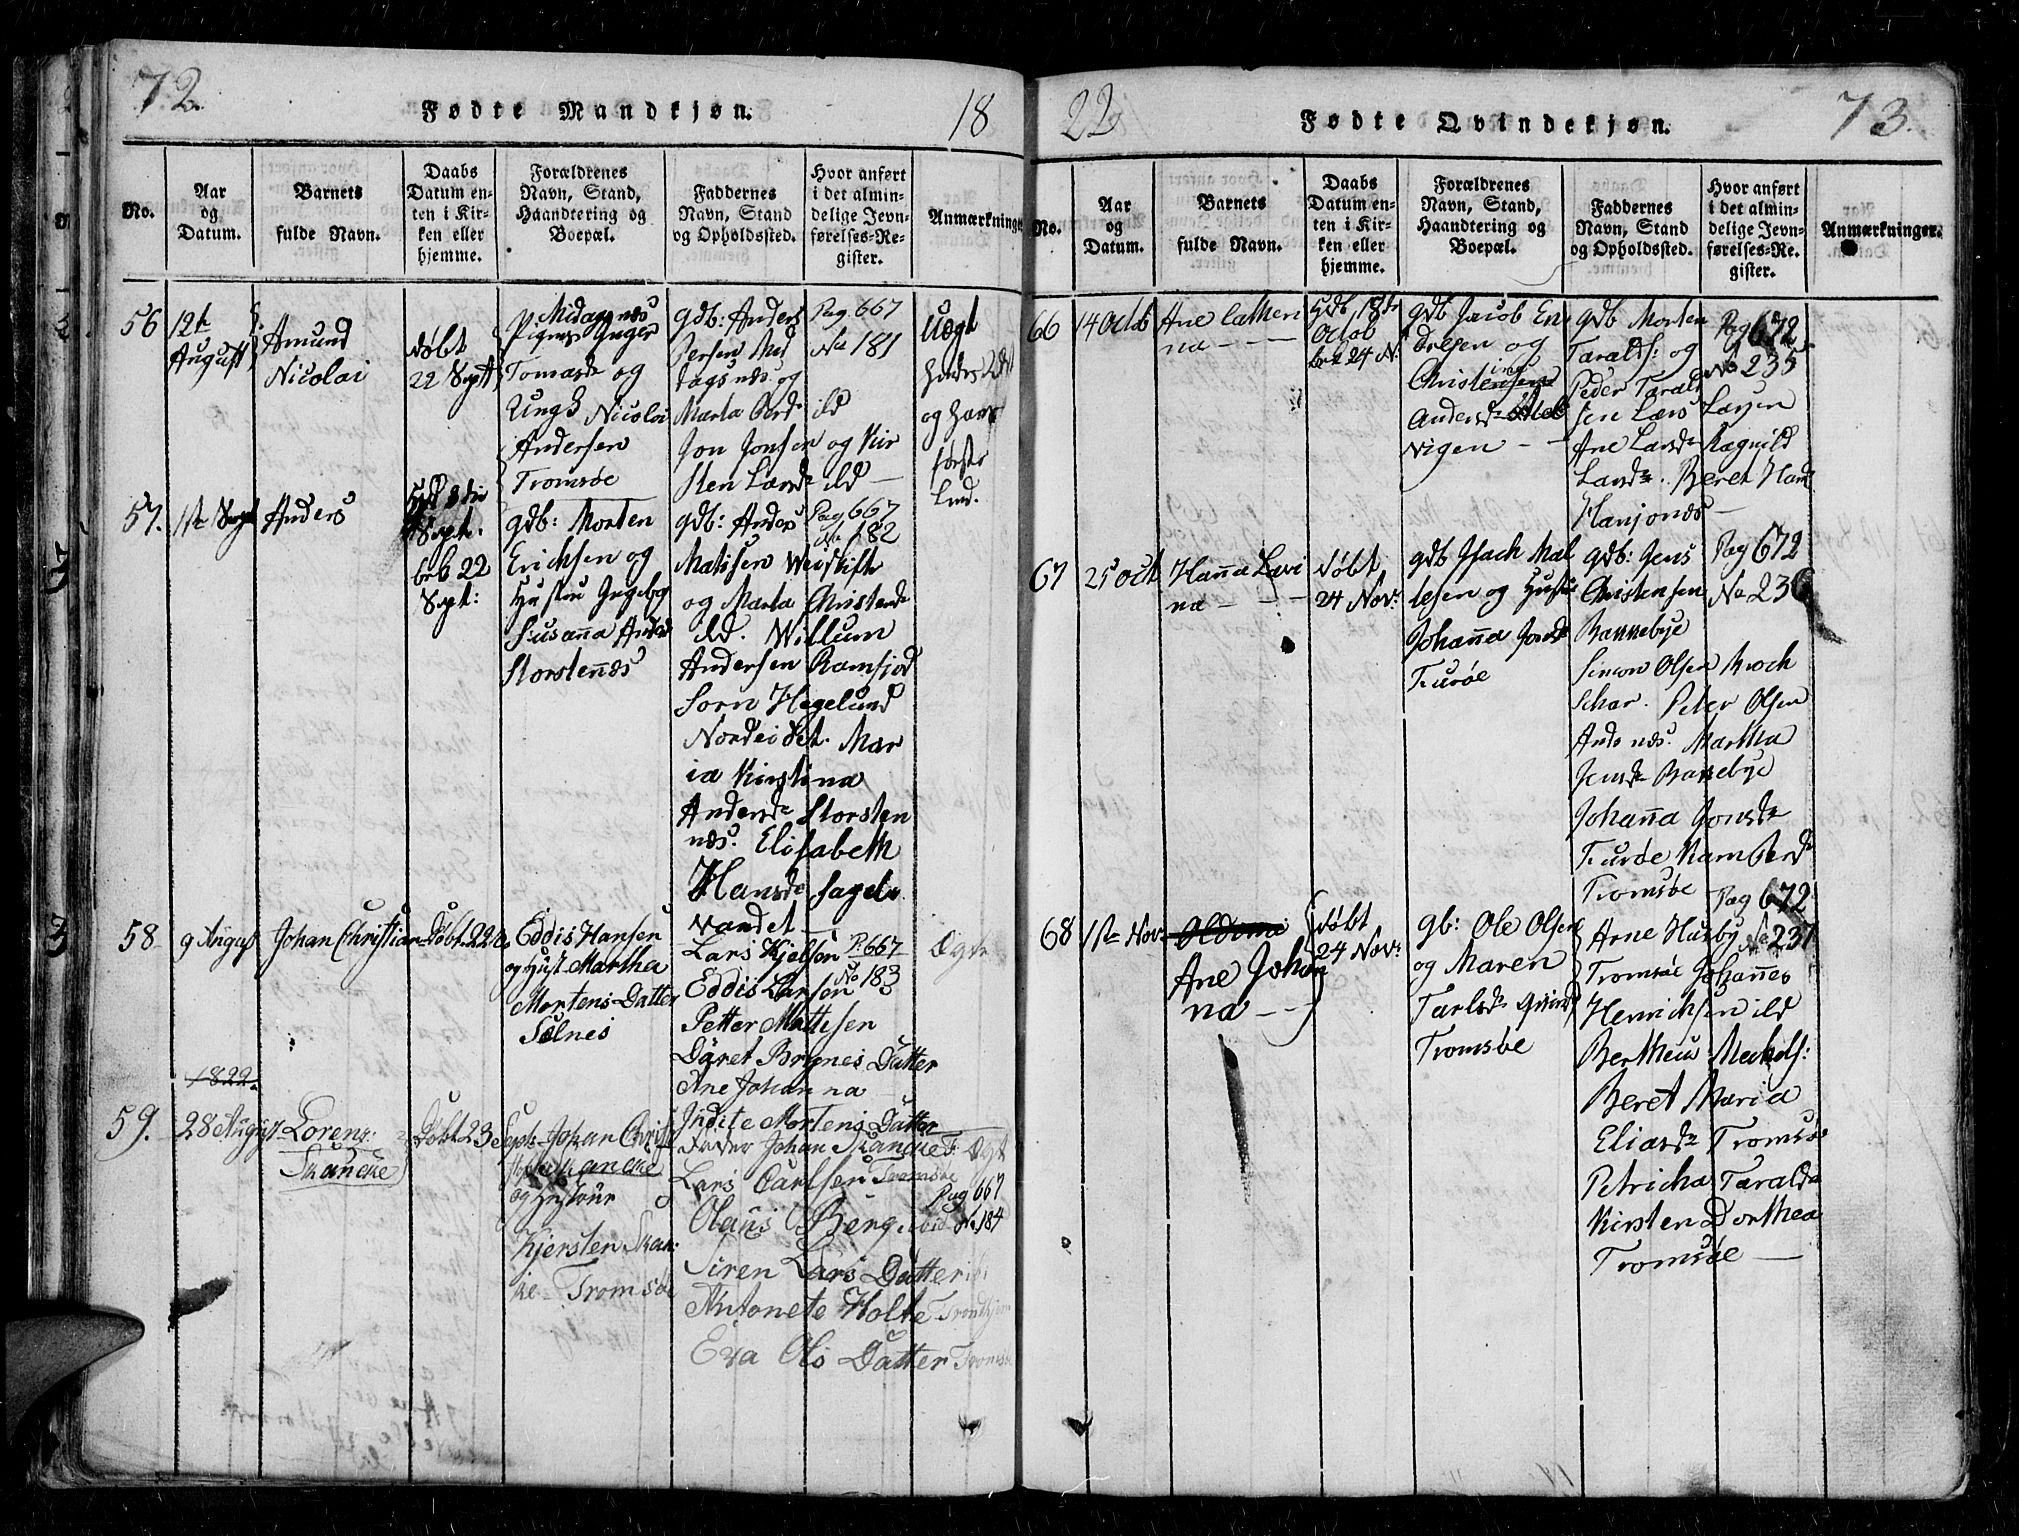 72.
Fødte Mandkjøn.
18
No.
Aar
og
Datum.
Barnets
fulde Navn.
Daabs
Datum en-
ten i Kir-
ken eller
hjemme.
Forældrenes
Navn, Stand,
Haandtering og
Boepæl.
Faddernes
Navn, Stand
og Opholdssted.
Hvor anført
i det almin-
delige Jevn-
førelses-Re-
gister.
Anmærkninger
56
12te
August
Amund
Nicolai
døbt
22 Sept
Midagsnæs
Pigen Inger
Tomasdr og
Ungk Nicolai
Andersen
Tromsøe
gdb: Anders
Jensen Mid
dagsnæs og
Marta ild
Jon Jonsen og Kir
sten Larsdr ild
Pag 667
No 181
Uægt
hendes
og hans
første
Leed.
57.
1ste Sept
Anders
hjd 8de
Sept.
beb 22
Sept:
gdb: Morten
Erichsen og
Hustru Ingebg
Susanna Andersd
Storstennæs
gdb: Anders
Matisen Weiskifte
og Marta Christensdr
ild. Willum
Andersen Ramfjord
Sorn Hegelund
Nordeidet. Mar
ia Kirstina
Andersdr Storsten
næs. Elisabeth
Hansdr Sagel
vandet
Pag 667
No 182
58
9 August
Johan Christian
Døbt 22
Eddis Hansen
og Hust Martha
Mortens Datter
Selnes
Lars Kjelsen
Eddis Larsen
Petter Mattesen
Døret Brynes Datter
Ane Johanna
Indite Mortens Datter
P. 667
No 183
Ægte
1822.
59.
28 August
Lorens
Skancke
Døbt 23 Sept:
Johan Christ
Skancke
og Hustrue
Kjersten Skan
ke Tromsøe
Fader Johan Skancke T.
Lars Carlsen Tromsøe
Olaus Berg ibid
Siren Lars Datter
Antonete Holte Trondhjem
Eva Ols Datter Tromsøe
Ægt
Pag 667
No 184
22
Fødte Qvindekjøn.
73.
No.
Aar
og
Datum.
Barnets
fulde Navn.
Daabs
Datum en-
ten i Kir-
ken eller
hjemme.
Forældrenes
Navn, Stand,
Haandtering og
Boepæl.
Faddernes
Navn, Stand
og Opholdssted.
Hvor anført
i det almin-
delige Jevn-
førelses-Re-
gister.
Anmærkninger.
66
14 Octob
Ane Cathri
na
hjdb. 18de
Octob
beb 24 N:
gdb Jacob En
dresen og
Christensen
Andersdr
vigen
gdb Morten
Taralds: og
Peder Tarald
sen Lars Larsen
Ane Larsdr Ragnild
Larsdr. Beret Hans
Hansjonæs
Pag 672
No 235
67
25 Oct
Hanna Lovi
na
døbt
24 Nov:
gdb Isach Mat
tesen og Hustru
Johanna Jonsdr
Tusøe
gdb: Jens
Christensen
Bakkebye
Simon Olsen Kroch
Skar. Peter Olsen
Andsnæs. Martha
Jensdr Bakkebye
Johanna Jonsdr
Tusøe
Tromsøe
Pag 672
No 236
68
1ste Nov.
Ane Johan
na
døbt
24 Nov:
gb: Ole Olsen
og Maren
Tarlsdr Qvind
Tromsøe
Arne Husby
Tromsøe Johannes
Henrichsen ild
Bertheus
Beret Maria
Eliasdr Tromsøe
Petricha Taraldsdr
Kirsten Dorthea
Tromsøe
Pag 672
No 237